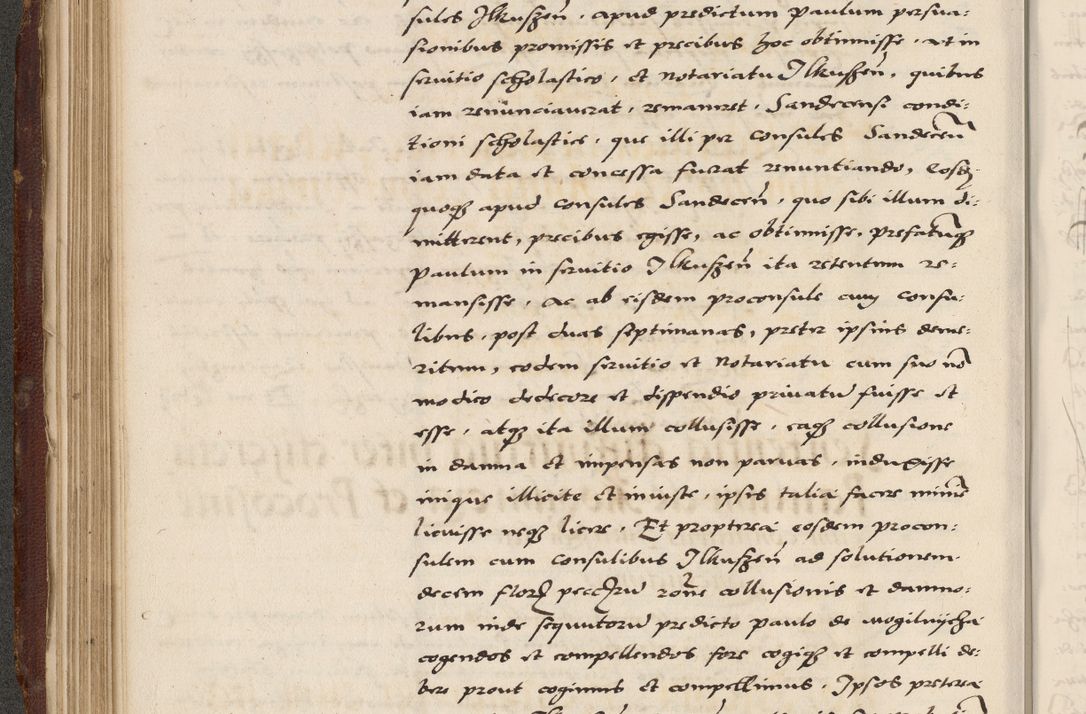 sules Ilkuszeñ . apud predictum Paulum persua:
sionibus promissis et precibus hoc obtinuisse . Ac in
seruitio scholastico . et Notariatu Ilkuszeñ . quibus
iam renunciauerat , remaneret . Sandecensi condi:
tioni scholastice . que illi per Consules Sandeceñ
iam data et concessa fuerat renuntiando, Eosdẽ
quoqꝫ apud Consules Sandeceñ . quo sibi illum di:
mitterent, precibus egisse, ac obtinuisse, prefatumqꝫ
Paulum in seruitio Ilkuszeñ ita retentum re:
mansisse . Ac ab eisdem proconsule cum Consu:
libus , post duas septimanas, preter ipsius deme:
ritum, eodem seruitio et Notariatu cum suo nõ
modico dedecore et dispendio priuatũ fuisse et
esse . atqꝫ ita illum collusisse . eaqꝫ collusione
in damna et impensas non paruas . induxisse
inique illicite et iniuste . ipsis talia facere minie
licuisse neqꝫ licere . Et propterea eosdem procon:
sulem cum consulibus Ilkuszeñ ad solutionem
decem florꝭ peccũrũ roñe collusionis et damno:
rum inde sequutorũ predicto Paulo de Mogilnijcha
cogendos et compellendos fore cogiqꝫ et compelli de:
bere prout cogimus et compellimus . Ipsos preterea